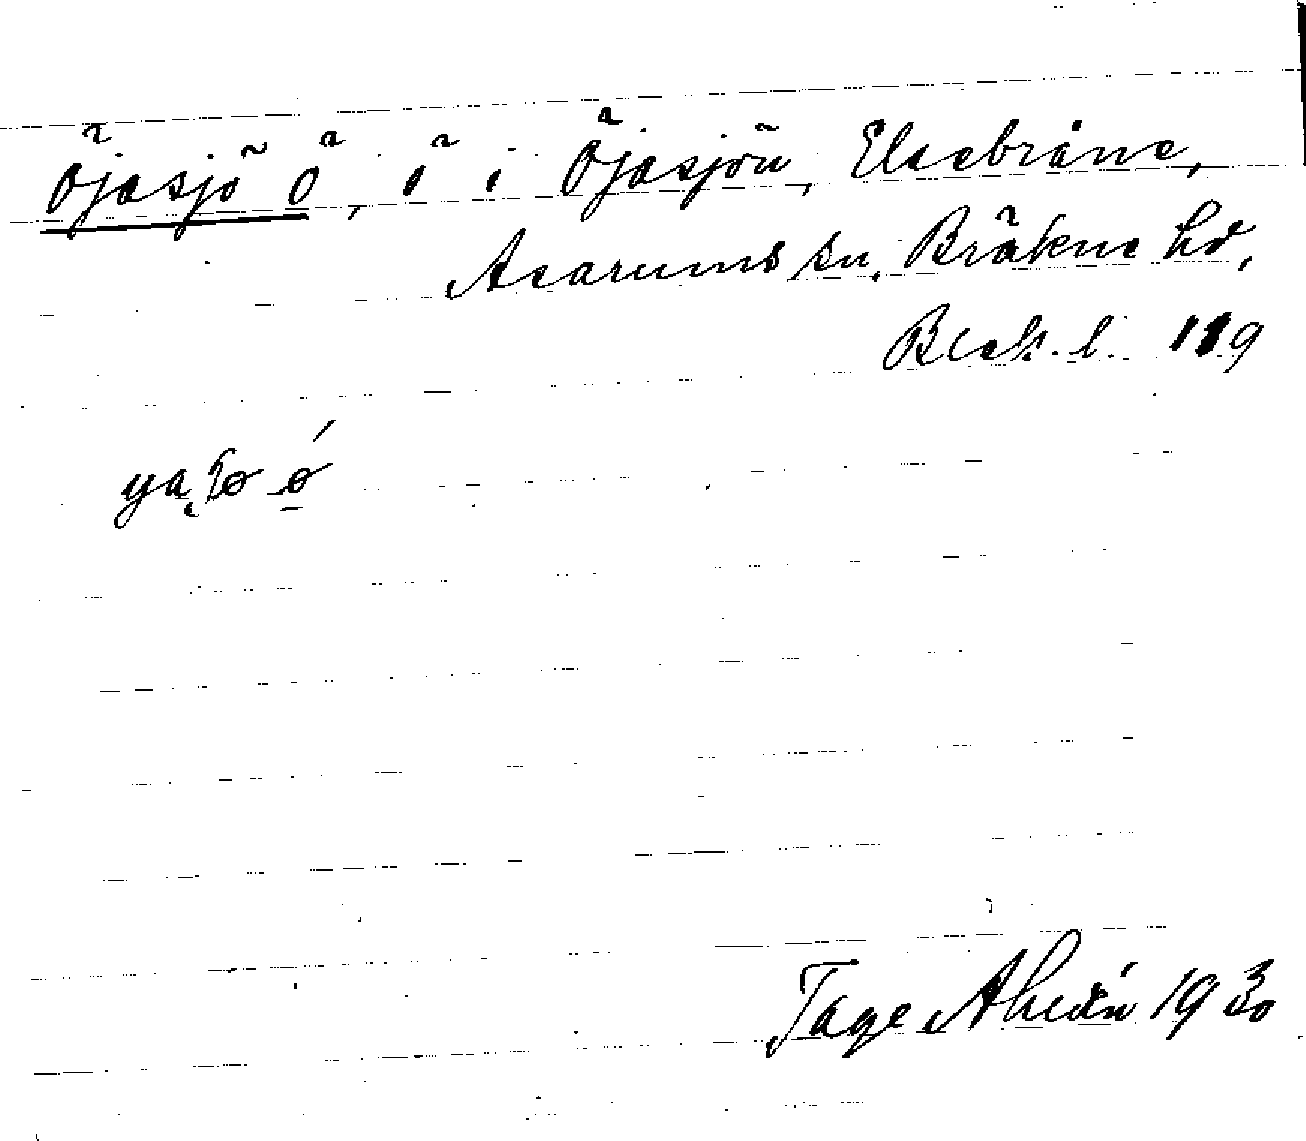 Öjasjö ö, ö i Öjasjön, Elsebråne,
Asarums sn, Bräkne hd,
Blek. l. 119
Tage Ahlén 1930